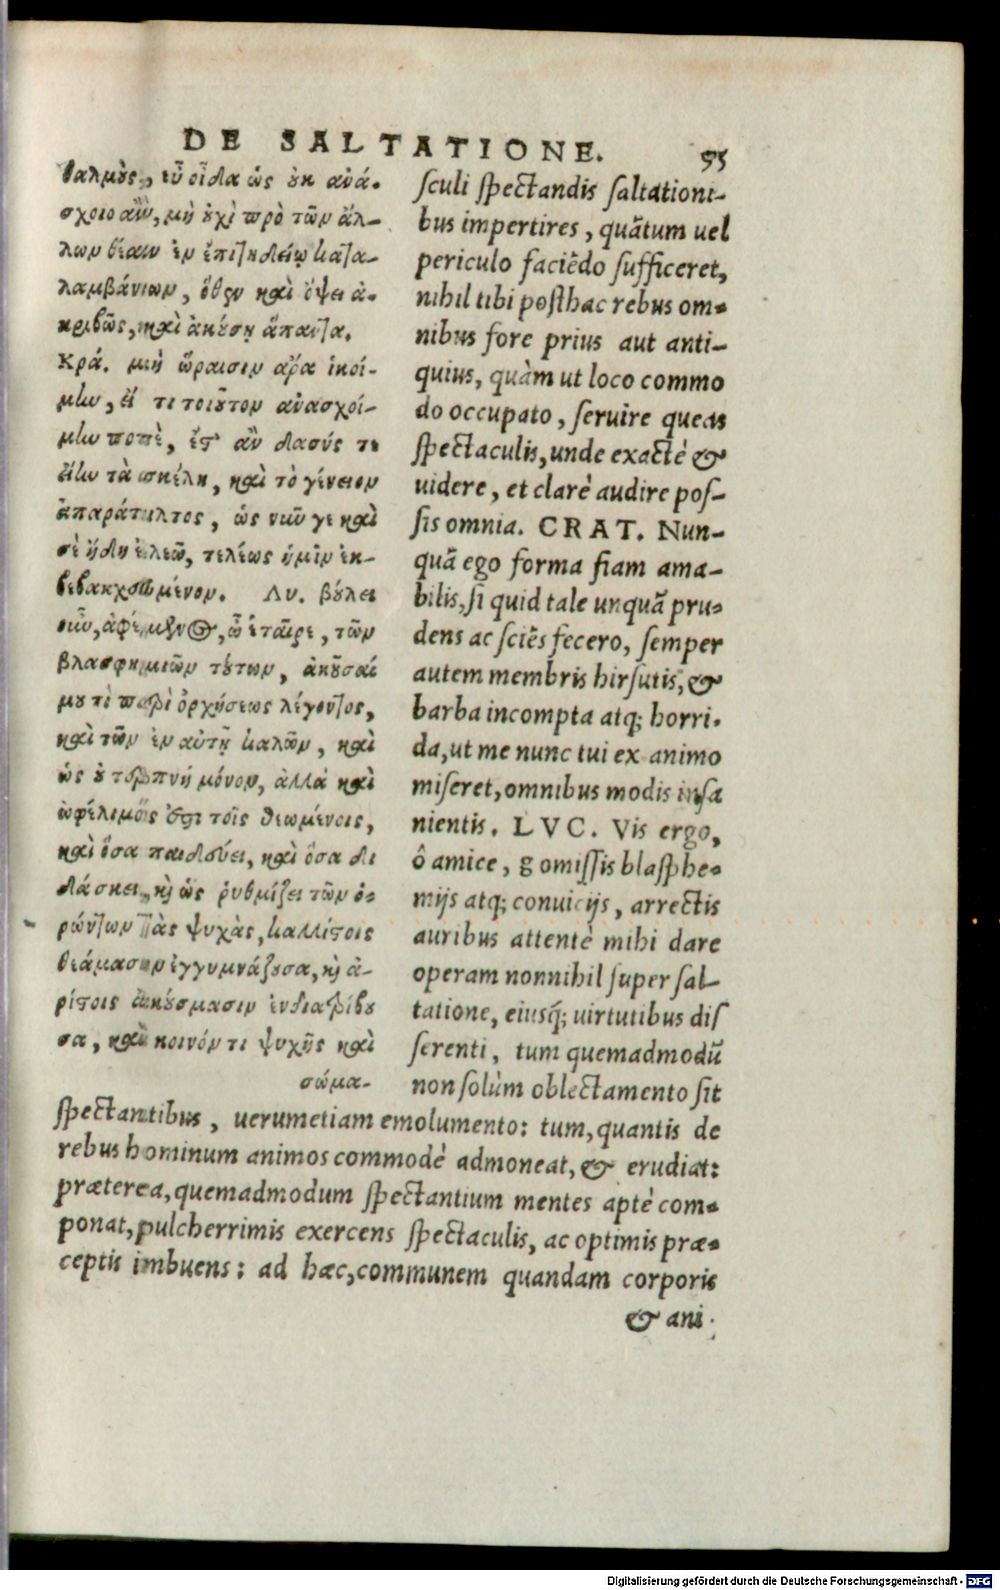 DE SALTATIONE. 95
θαλμοὺς, εὖ οἶδα ὡς οὐκ ἀνά-
σχοιο ἂν, μὴ οὐχὶ πρὸ τῶν ἄλ-
λων θέαν ἐν ἐπιτηδείῳ κατα-
λαμβάνων, ὅθεν καὶ ὄψει ἀ-
κριβῶς, καὶ ἀκούσῃ ἅπαντα.
Κρά. μὴ ὥραισιν ἄρα ἱκοί-
μην, εἴ τι τοιοῦτον ἀνασχοί-
μην ποτὲ, ἔστ' ἂν δασύς τε
εἴην τὰ σκέλη, καὶ τὸ γένειον
ἀπαράτιλτος, ὡς νῦν γε καὶ
σὲ ἤδη ἐλεῶ, τελέως ἡμῖν ἐκ-
βεβακχευμένον. Λυ. βούλει
οὖν, ἀφέμενος, ὦ ἑταῖρε, τῶν
βλασφημιῶν τούτων, ἀκοῦσαί
μου τὶ περὶ ὀρχήσεως λέγοντος,
καὶ τῶν ἐν αὐτῇ καλῶν, καὶ
ὡς οὐ τερπνὴ μόνον, ἀλλὰ καὶ
ὠφέλιμός ἐστι τοῖς θεωμένοις,
καὶ ὅσα παιδεύει, καὶ ὅσα δι
δάσκει, καὶ ὡς ῥυθμίζει τῶν ὁ-
ρώντων τὰς ψυχὰς, καλλίστοις
θεάμασιν ἐγγυμνάζουσα, καὶ ἀ-
ρίστοις ἀκούσμασιν ἐνδιατρίβου
σα, καὶ κοινόν τι ψυχῆς καὶ
σώμα-
sculi spectandis saltationi-
bus impertires, quātum uel
periculo faciēdo sufficeret,
nihil tibi posthac rebus om-
nibus fore prius aut anti-
quius, quàm ut loco commo
do occupato, seruire queas
spectaculis, unde exactè &
uidere, et clarè audire pos-
sis omnia. CRAT. Nun-
quā ego forma fiam ama-
bilis, si quid tale unquā pru-
dens ac sciēs fecero, semper
autem membris hirsutis, &
barba incompta atq; horri-
da, ut me nunc tui ex animo
miseret, omnibus modis insa
nientis. LVC. Vis ergo,
ô amice, ꝗ omissis blasphe-
mijs atq; conuicijs, arrectis
auribus attentè mihi dare
operam nonnihil super sal-
tatione, eiusq́; uirtutibus dis
serenti, tum quemadmodū
non solùm oblectamento sit
spectantibus, uerumetiam emolumento: tum, quantis de
rebus hominum animos commodè admoneat, & erudiat:
præterea, quemadmodum spectantium mentes aptè com-
ponat, pulcherrimis exercens spectaculis, ac optimis præ-
ceptis imbuens: ad hæc, communem quandam corporis
& ani
Digitalisierung gefördert durch die Deutsche Forschungsgemeinschaft - DFG